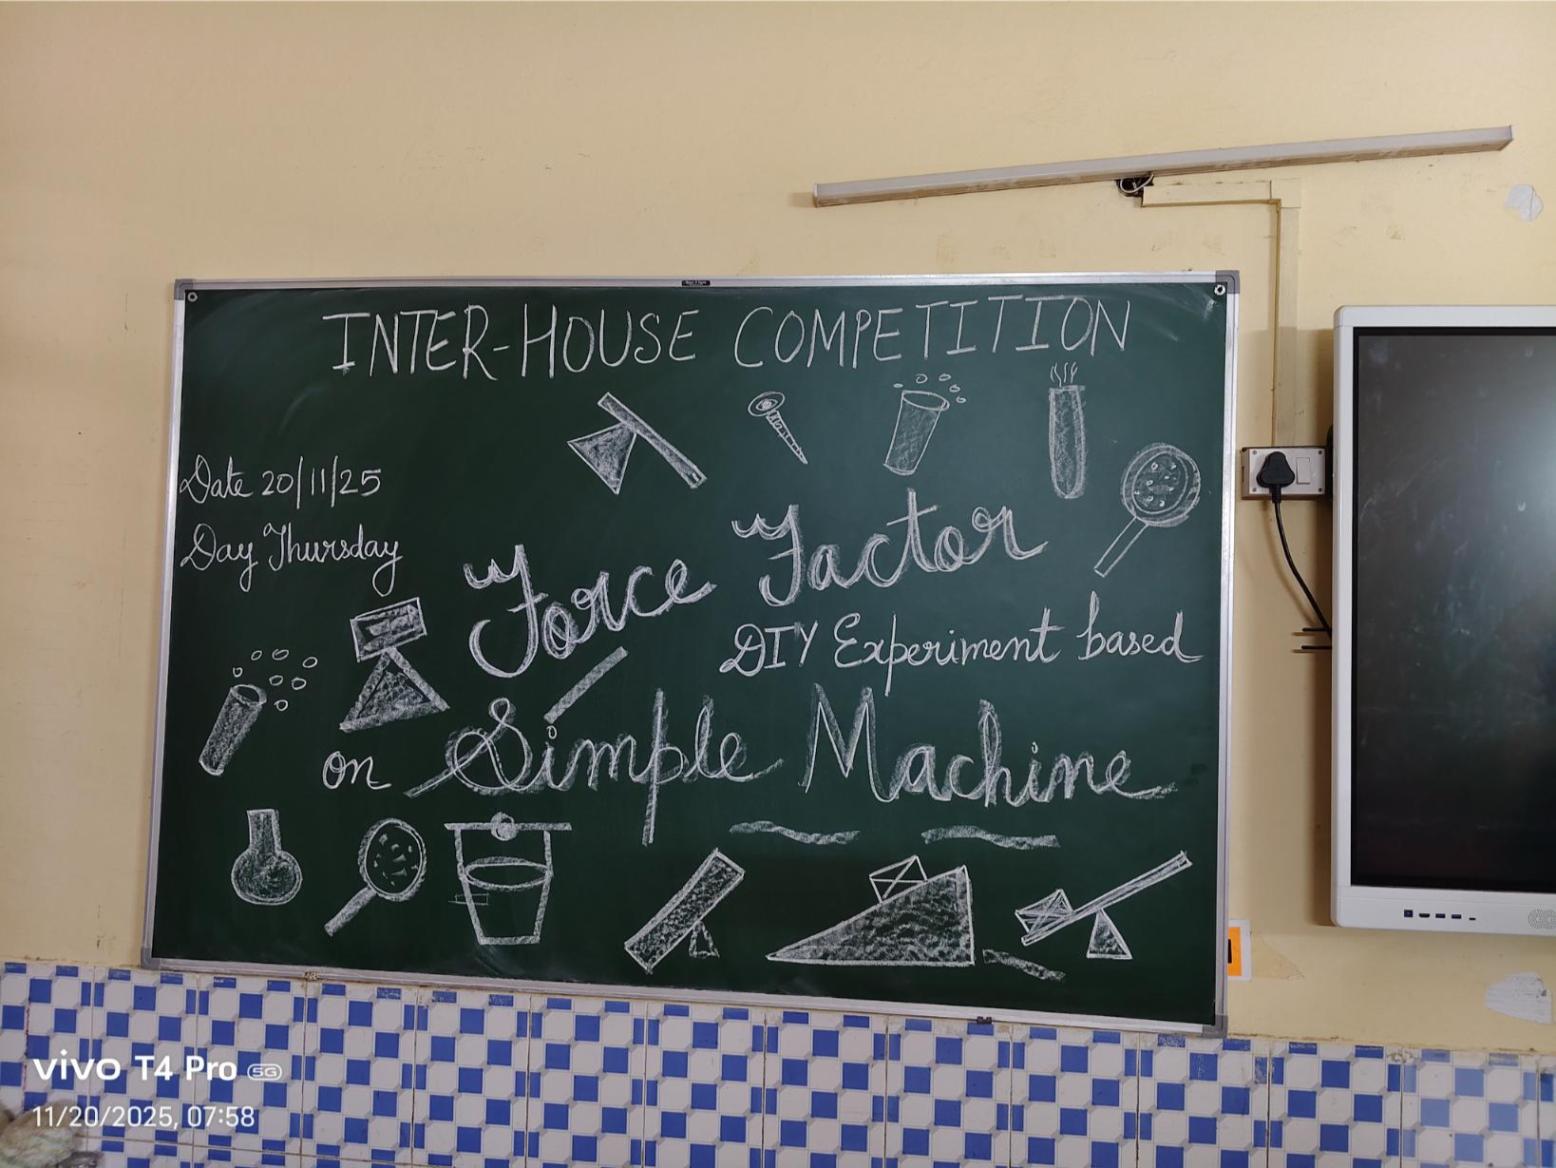 INTER-HOUSE COMPETITION
Date 20/11/25
Day Thursday
Force Factor
DIY Experiment based
on Simple Machine
vivo T4 Pro 5G
11/20/2025, 07:58